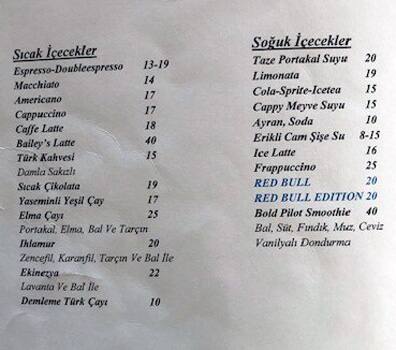 Sıcak İçecekler
Espresso-Doubleespresso 13-19
Macchiato 14
Americano 17
Cappuccino 17
Caffe Latte 18
Bailey's Latte 40
Türk Kahvesi 15
Damla Sakızlı
Sıcak Çikolata 19
Yaseminli Yeşil Çay 17
Elma Çayı 25
Portakal, Elma, Bal Ve Tarçın
Ihlamur 20
Zencefil, Karanfil, Tarçın Ve Bal İle
Ekinezya 22
Lavanta Ve Bal İle
Demleme Türk Çayı 10
Soğuk İçecekler
Taze Portakal Suyu 20
Limonata 19
Cola-Sprite-Icetea 15
Cappy Meyve Suyu 15
Ayran, Soda 10
Erikli Cam Şişe Su 8-15
Ice Latte 16
Frappuccino 25
RED BULL 20
RED BULL EDITION 20
Bold Pilot Smoothie 40
Bal, Süt, Fındık, Muz, Ceviz
Vanilyalı Dondurma